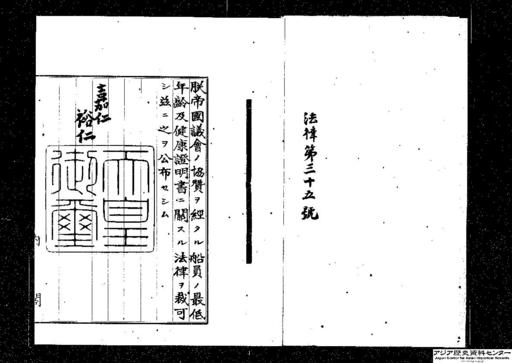 法律第三十五號
朕帝國議會ノ協贊ヲ經タル船員ノ最低
年齡及健康證明書ニ關スル法律ヲ裁可
シ茲ニ之ヲ公布セシム
嘉仁
裕仁
天皇
御璽
内閣
アジア歴史資料センター
Japan Center for Asian Historical Records